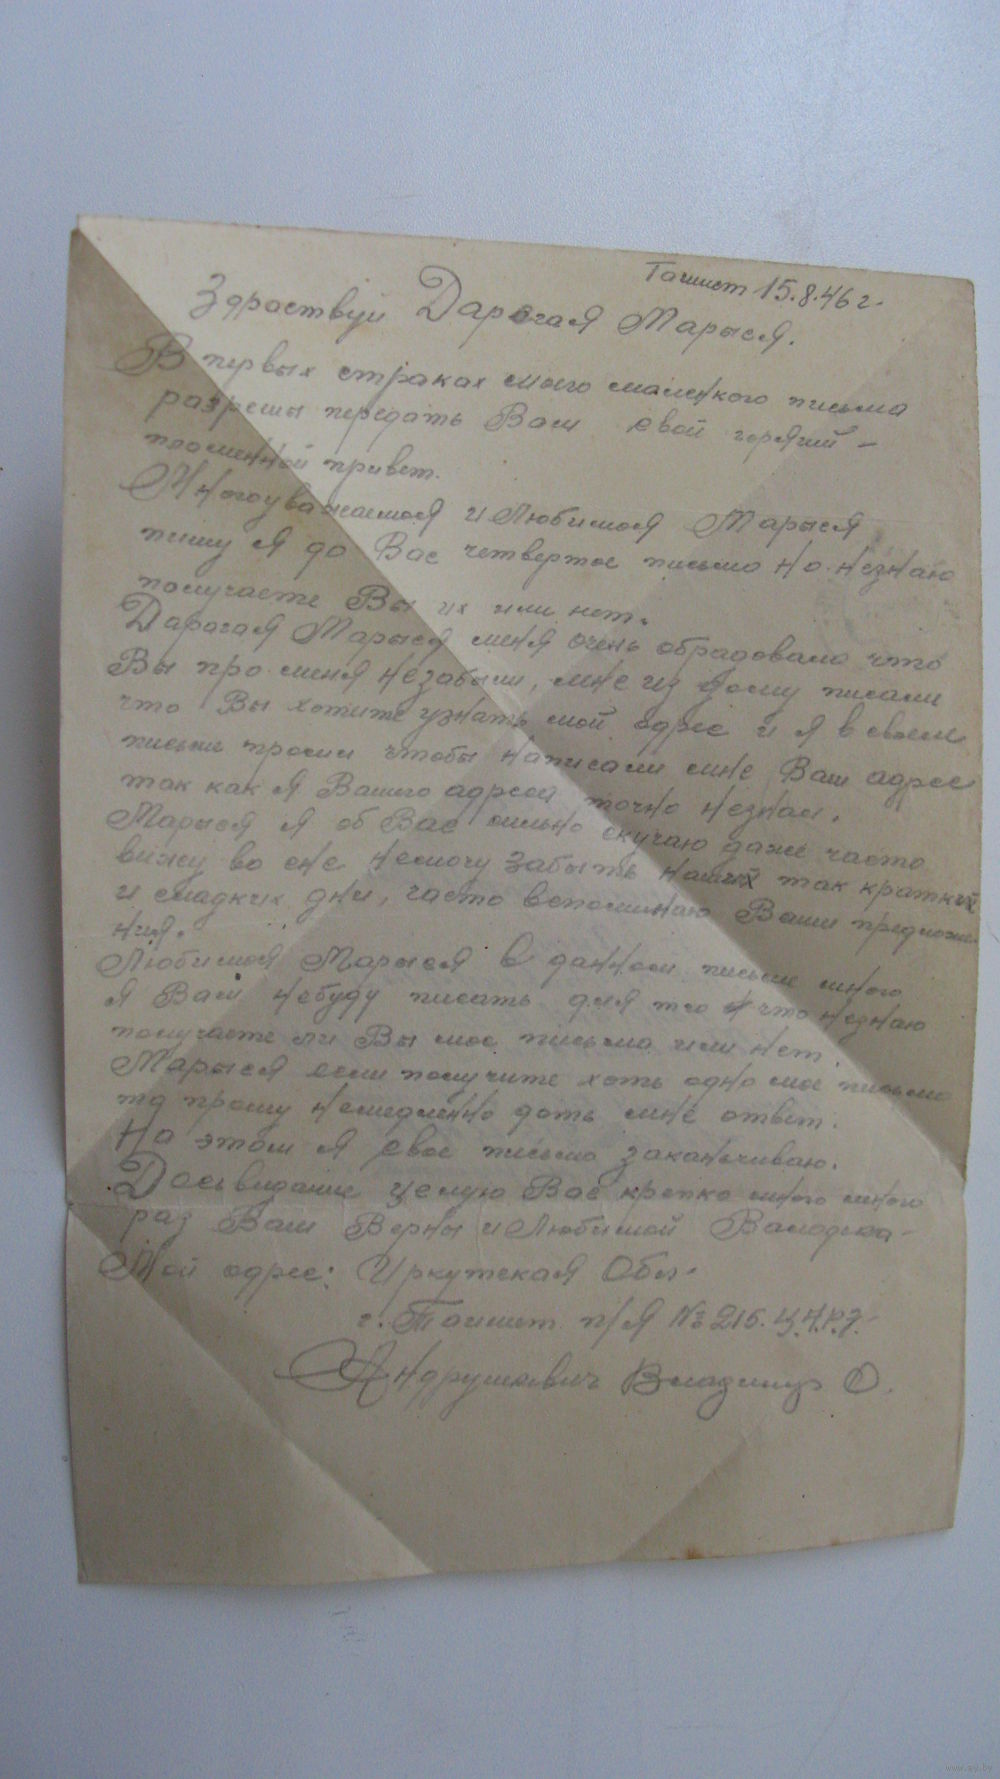 Тайшет 15.8.46 г.
Здраствуй Дарогая Марыся.
В первых страках моего маленкого письма
разрешы передать Вам свой горячий -
пламенной привет.
Многоуважаемая и Любимая Марыся
пишу я до Вас четвертое письмо но незнаю
получаете Вы их или нет.
Дарагая Марыся меня очень обрадовало что
Вы про меня незабыли, мне из дому писали
что Вы хотите узнать мой адрес и я в своем
письме просил чтобы написали мне Ваш адрес
так как я Вашего адреса точно незнал.
Марыся я об Вас сильно скучаю даже часто
вижу во сне немогу забыть наших так кратких
и сладких дни, часто вспоминаю Ваши предложе-
ния.
Любимая Марыся в данном письме много
я Вам небуду писать для того что незнаю
получаете ли Вы мое письма или нет.
Марыся если получите хоть одно мое письмо
то прошу немедленно дать мне ответ.
На этом я свое письмо заканьчиваю.
Досьвидание целую Вас крепко много много
раз Ваш Верны и Любимой Валодька-
Мой адрес: Иркутская Обл.
г. Тайшет п/я № 215. Ц.А.Р.З.
Андрушкевич Владимир О.
www.ay.by